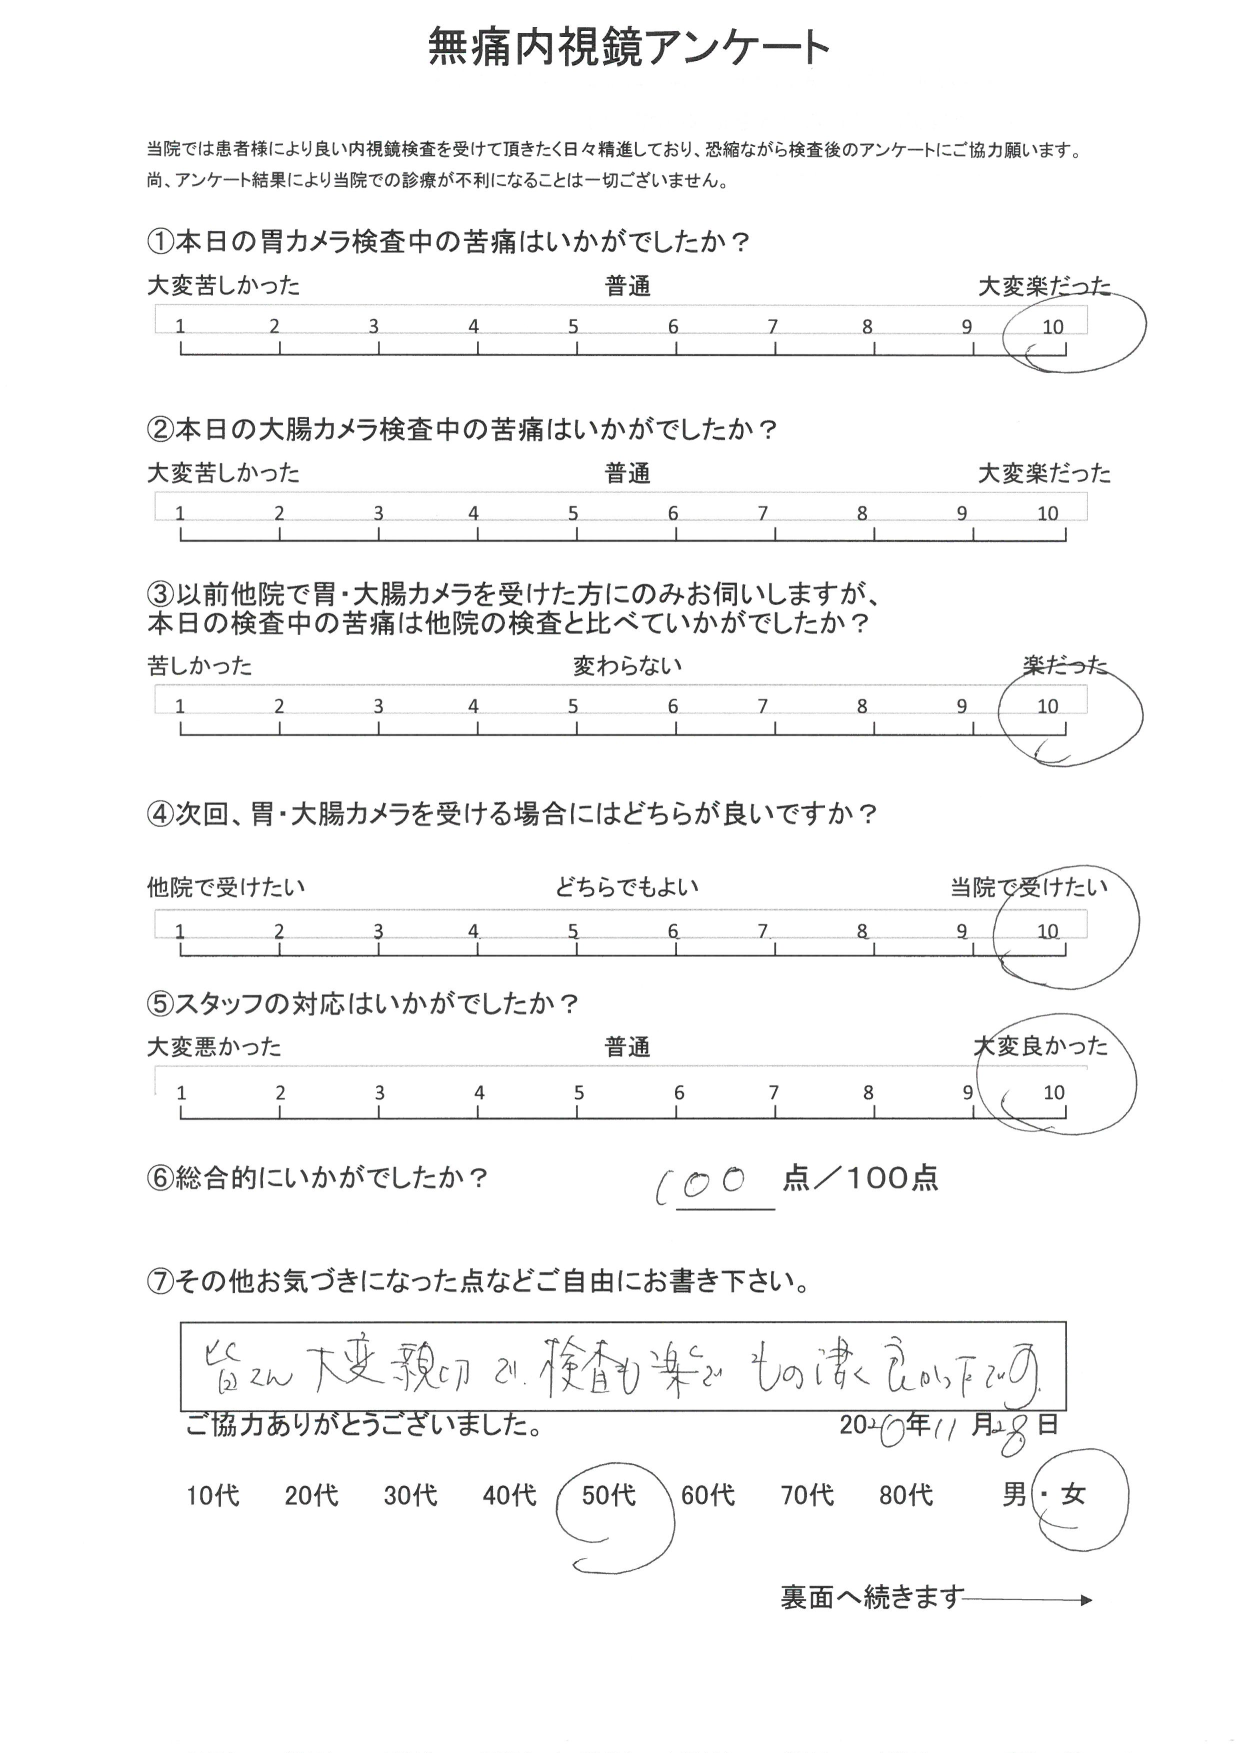 無痛内視鏡アンケート
当院では患者様により良い内視鏡検査を受けて頂きたく日々精進しており、恐縮ながら検査後のアンケートにご協力願います。
尚、アンケート結果により当院での診療が不利になることは一切ございません。
①本日の胃カメラ検査中の苦痛はいかがでしたか？
大変苦しかった 普通 大変楽だった
1 2 3 4 5 6 7 8 9 10
②本日の大腸カメラ検査中の苦痛はいかがでしたか？
大変苦しかった 普通 大変楽だった
1 2 3 4 5 6 7 8 9 10
③以前他院で胃・大腸カメラを受けた方にのみお伺いしますが、
本日の検査中の苦痛は他院の検査と比べていかがでしたか？
苦しかった 変わらない 楽だった
1 2 3 4 5 6 7 8 9 10
④次回、胃・大腸カメラを受ける場合にはどちらが良いですか？
他院で受けたい どちらでもよい 当院で受けたい
1 2 3 4 5 6 7 8 9 10
⑤スタッフの対応はいかがでしたか？
大変悪かった 普通 大変良かった
1 2 3 4 5 6 7 8 9 10
⑥総合的にいかがでしたか？ 100 点／100点
⑦その他お気づきになった点などご自由にお書き下さい。
皆さん大変親切で、検査も楽でもの凄く良かったです。
ご協力ありがとうございました。 2020年11月28日
10代 20代 30代 40代 50代 60代 70代 80代 男・女
裏面へ続きます